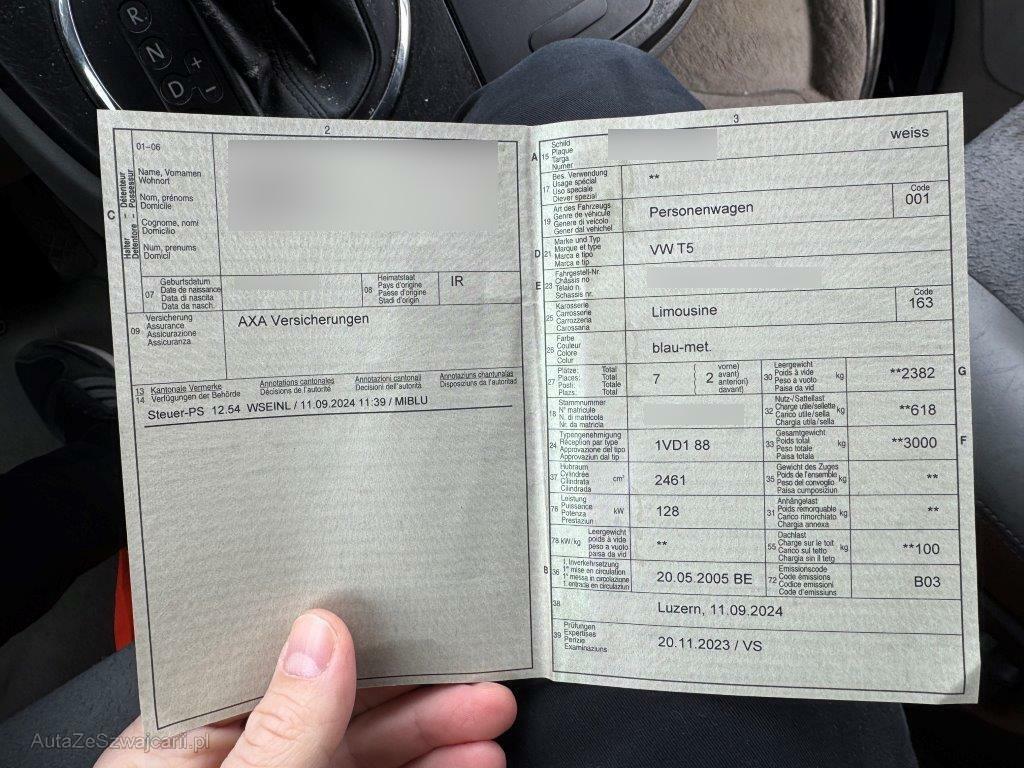 R
N
D
+
-
2
01-06
Name, Vornamen
Wohnort
Nom, prénoms
Domicile
Cognome, nomi
Domicilio
Num, prenums
Domicil
C
Halter – Détenteur
Detentore – Possessur
07
Geburtsdatum
Date de naissance
Data di nascita
Data da nasch.
08
Heimatstaat
Pays d'origine
Paese d'origine
Stadi d'origin
IR
09
Versicherung
Assurance
Assicurazione
Assicuranza
AXA Versicherungen
13
14
Kantonale Vermerke
Verfügungen der Behörde
Annotations cantonales
Décisions de l'autorité
Annotazioni cantonali
Decisioni dell'autorità
Annotaziuns chantunalas
Disposiziuns da l'autoritad
Steuer-PS 12.54 WSEINL / 11.09.2024 11:39 / MIBLU
3
A
15
Schild
Plaque
Targa
Numer
weiss
17
Bes. Verwendung
Usage spécial
Uso speciale
Diever spezial
**
19
Art des Fahrzeugs
Genre de véhicule
Genere di veicolo
Gener dal vehichel
Personenwagen
Code
001
D
21
Marke und Typ
Marque et type
Marca e tipo
Marca e tip
VW T5
E
23
Fahrgestell-Nr.
Châssis no
Telaio n.
Schassis nr.
25
Karosserie
Carrosserie
Carrozzeria
Carossaria
Limousine
Code
163
26
Farbe
Couleur
Colore
Colur
blau-met.
27
Plätze: Total
Places: Total
Posti: Totale
Plazs: Total
7
2
vorne)
avant)
anteriori)
davant)
30
Leergewicht
Poids à vide
Peso a vuoto
Paisa da vid
kg
**2382
G
18
Stammnummer
N° matricule
N. di matricola
Nr. da matricla
32
Nutz-/Sattellast
Charge utile/sellette
Carico utile/sella
Chargia utila/sella
kg
**618
24
Typengenehmigung
Réception par type
Approvazione del tipo
Approvaziun dal tip
1VD1 88
33
Gesamtgewicht
Poids total
Peso totale
Paisa totala
kg
**3000
F
37
Hubraum
Cylindrée
Cilindrata
Cilindrada
cm³
2461
35
Gewicht des Zuges
Poids de l'ensemble
Peso del convoglio
Paisa cumposiziun
kg
**
76
Leistung
Puissance
Potenza
Prestaziun
kW
128
31
Anhängelast
Poids remorquable
Carico rimorchiato
Chargia annexa
kg
**
78 kW/kg
Leergewicht
poids à vide
peso a vuoto
paisa da vid
**
55
Dachlast
Charge sur le toit
Carico sul tetto
Chargia sin il tetg
kg
**100
B
36
1. Inverkehrsetzung
1re mise en circulation
1a messa in circolazione
1. entrada en circulaziun
20.05.2005 BE
72
Emissionscode
Code émissions
Codice emissioni
Code d'emissiuns
B03
38
Luzern, 11.09.2024
39
Prüfungen
Expertises
Perizie
Examinaziuns
20.11.2023 / VS
AutaZeSzwajcarii.pl